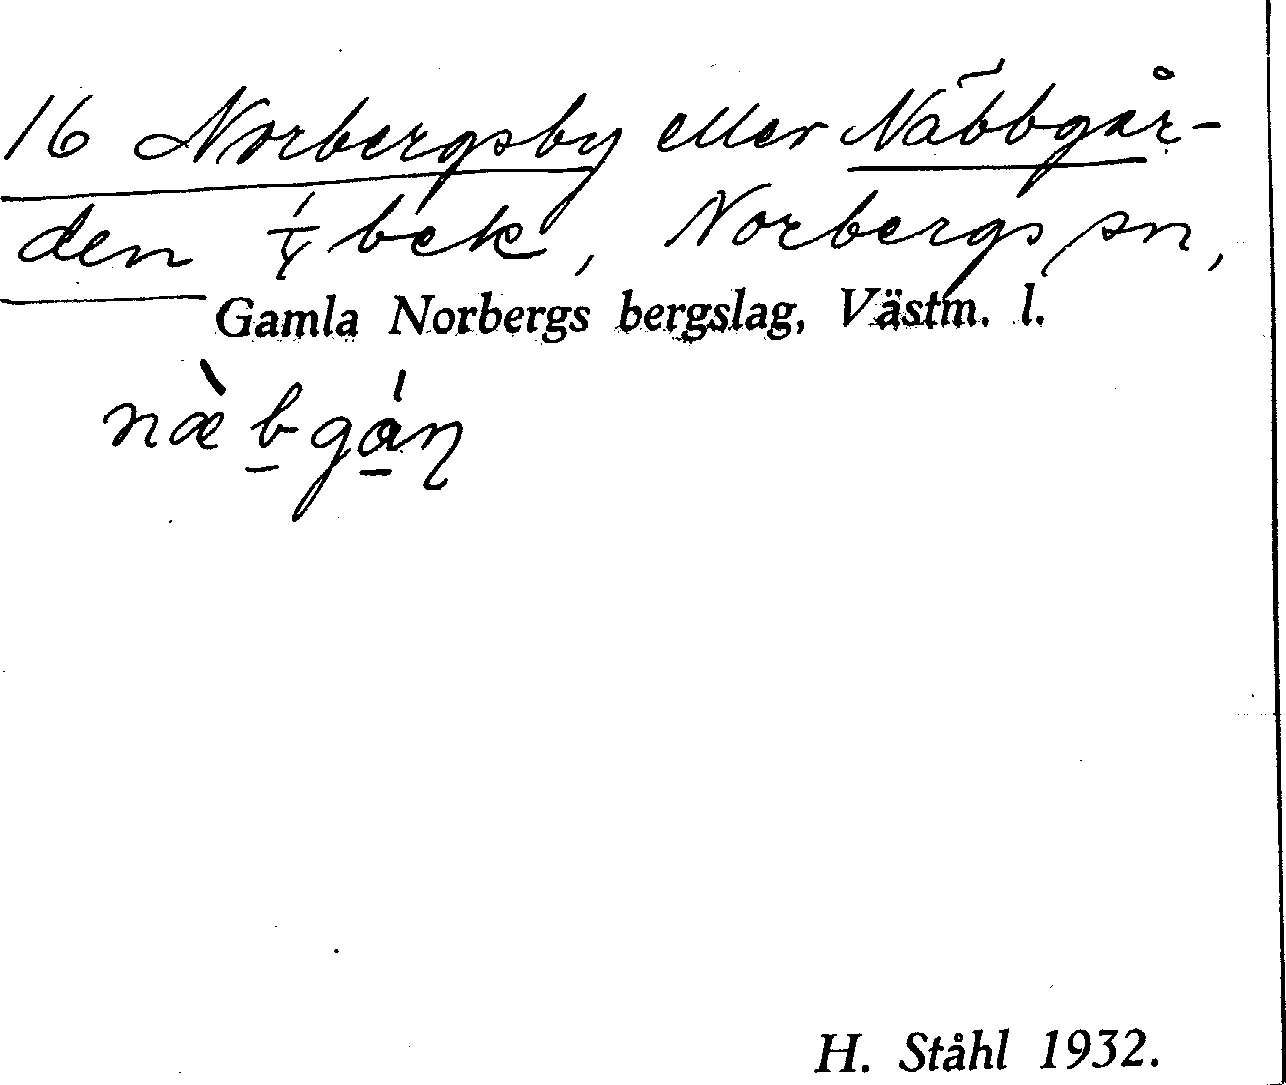 16 Norbergsby eller Näbbgår-
den 1/4 bek, Norbergs sn,
Gamla Norbergs bergslag, Västm. l.
næ̀bgån
H. Ståhl 1932.